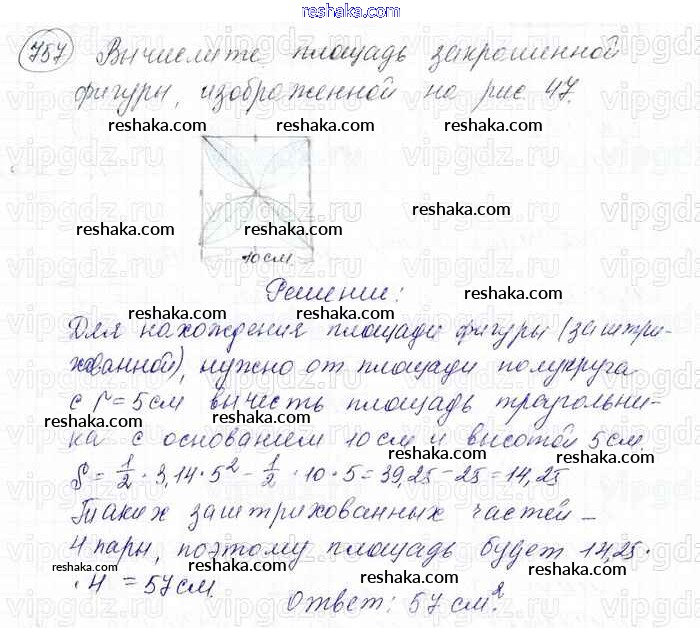 reshaka.com
757 Вычислите площадь закрашенной
фигуры, изображенной на рис 47.
reshaka.com reshaka.com
reshaka.com
reshaka.com
10 см
reshaka.com
Решении:
reshaka.com reshaka.com
Для нахождения площади фигуры (заштри-
хованной), нужно от площади полукруга
reshaka.com reshaka.com
с r=5см вычесть площадь треугольни-
ка с основанием 10 см и высотой 5 см.
reshaka.com reshaka.com
S = 1/2 · 3,14 · 5² - 1/2 · 10 · 5 = 39,25 - 25 = 14,25
reshaka.com
Таких заштрихованных частей -
reshaka.com
4 пары, поэтому площадь будет 14,25 ·
reshaka.com reshaka.com
· 4 = 57 см.
reshaka.com
Ответ: 57 см².